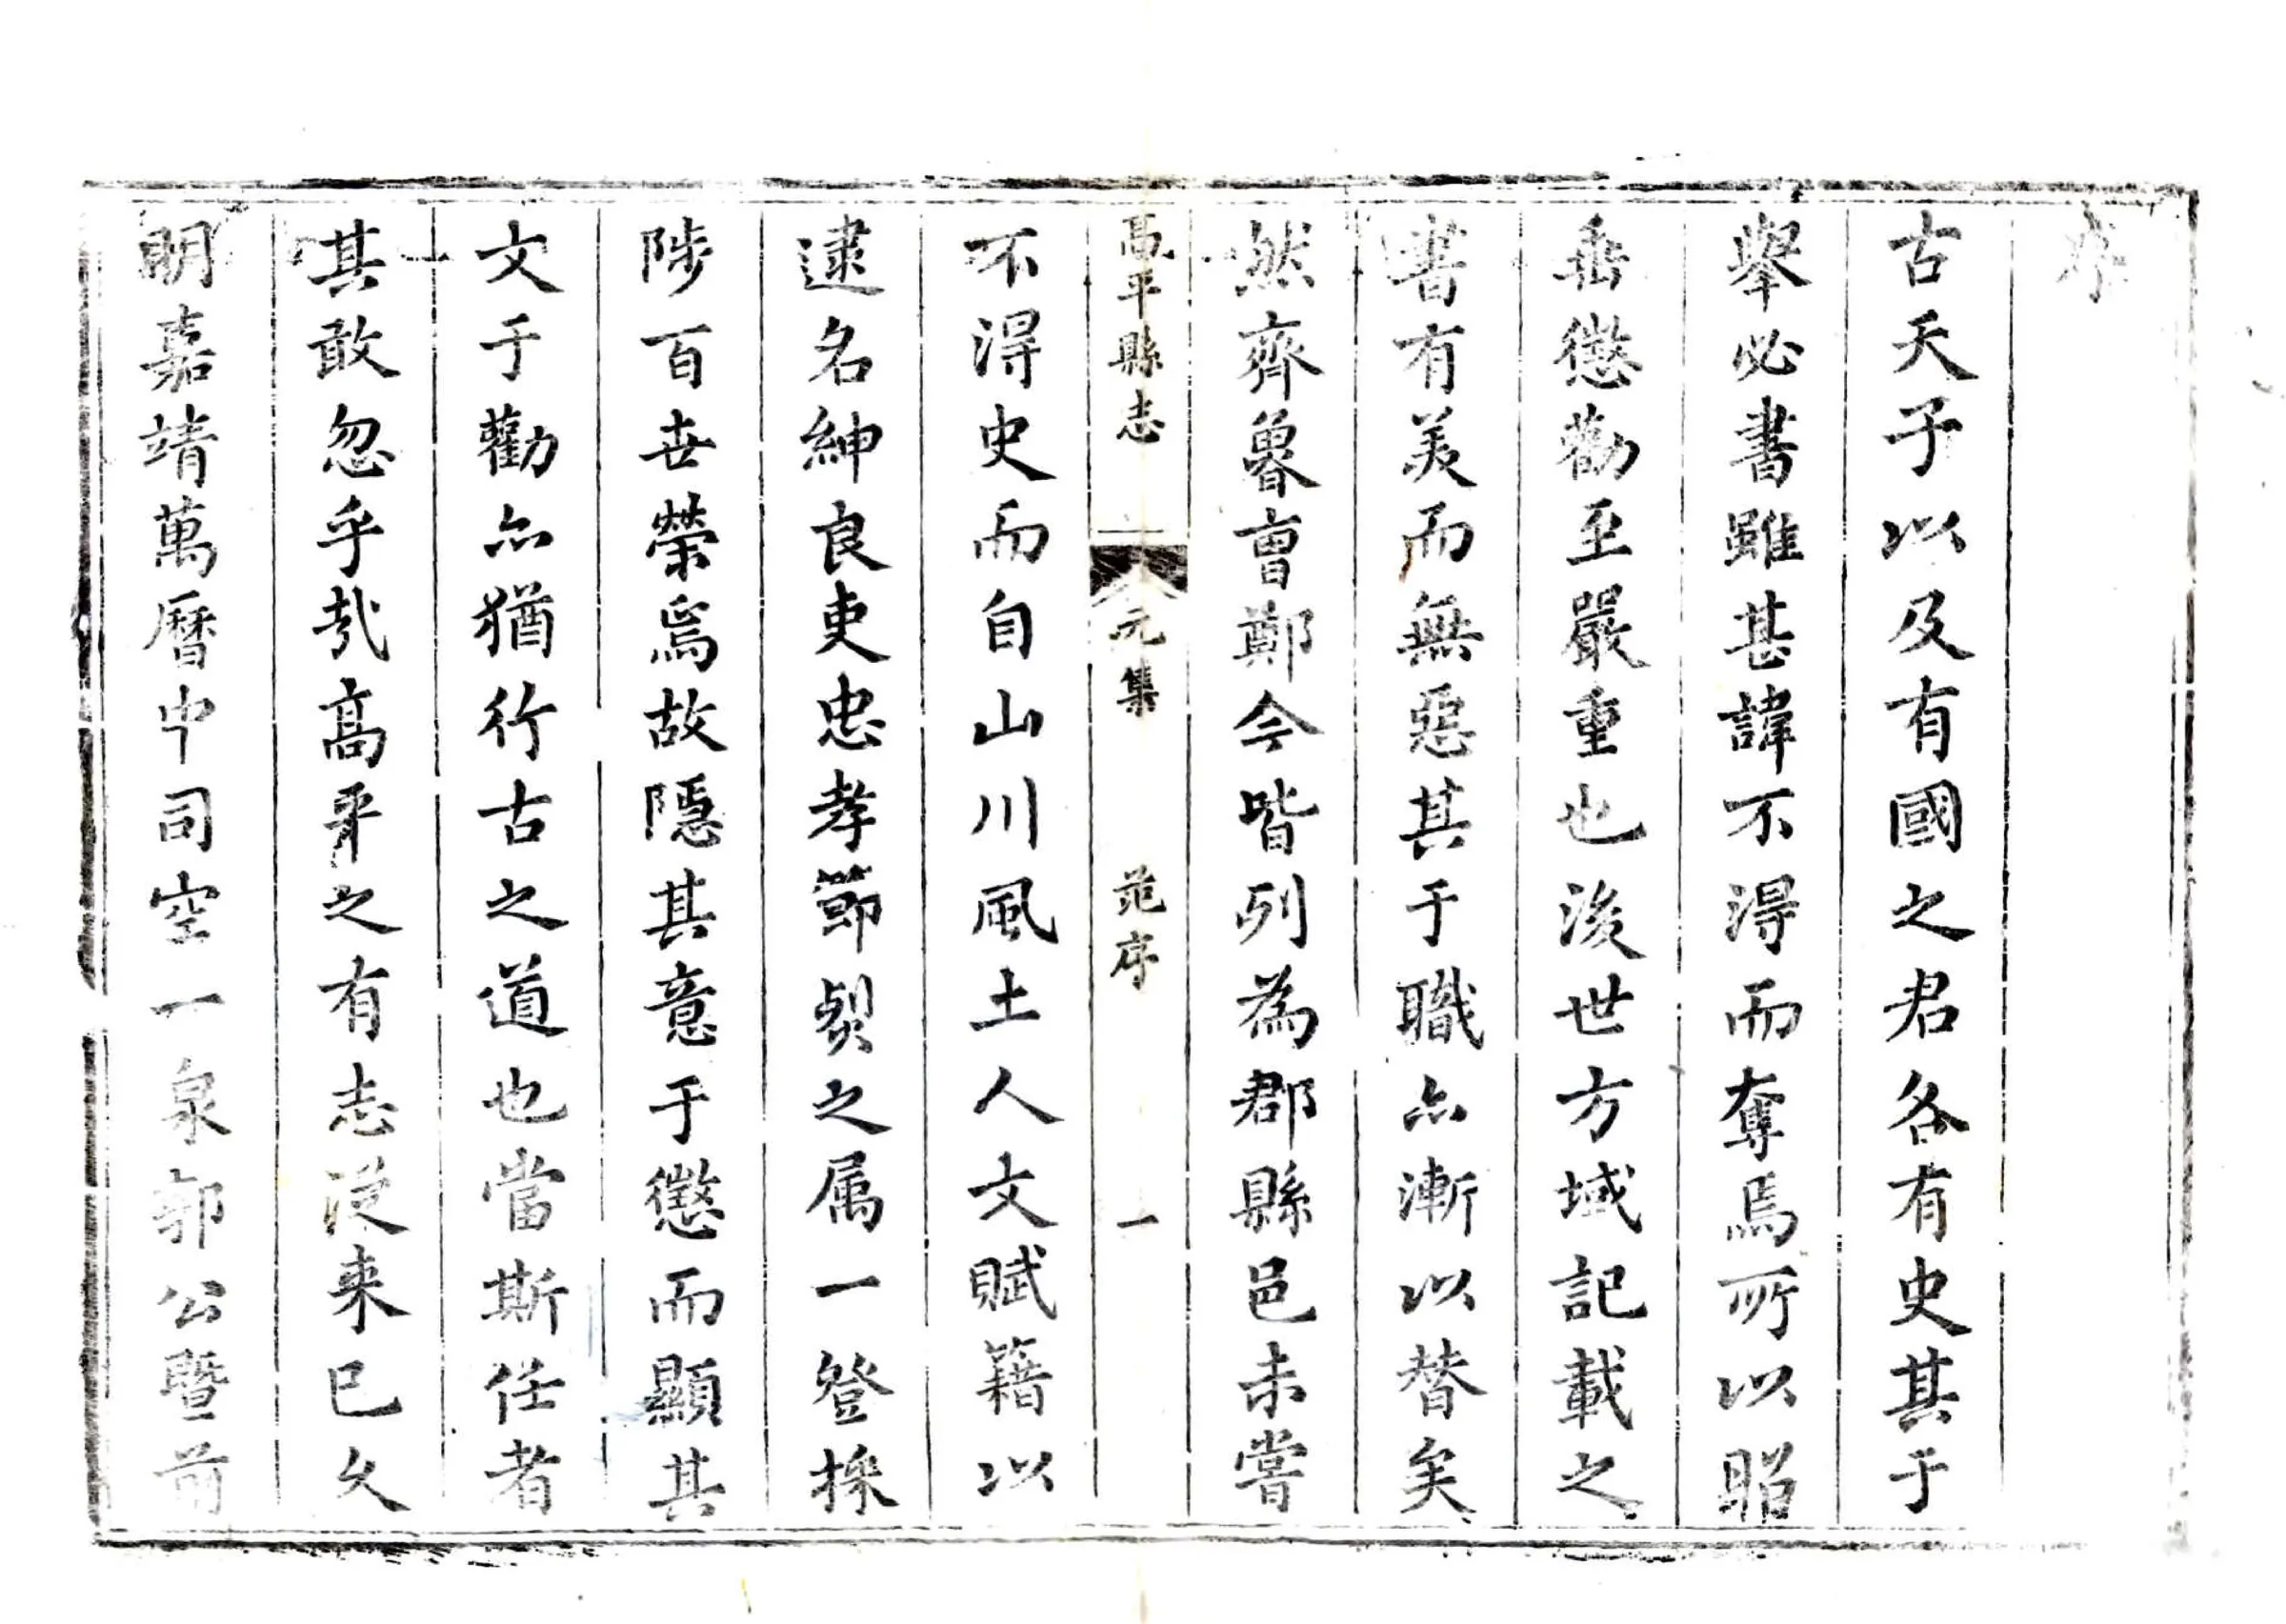 序
古天子以及有國之君各有史其于
舉必書雖甚諱不得而奪焉所以昭
垂懲勸至嚴重也後世方域記載之
書有美而無惡其于職亦漸以替矣
然齊魯曹鄭今皆列為郡縣邑未嘗
高平縣志 元集 范序 一
不得史而自山川風土人文賦籍以
逮名紳良吏忠孝節烈之属一登採
陟百世榮焉故隱其意于懲而顯其
文于勸亦猶行古之道也當斯任者
其敢忽乎哉髙平之有志從来已久
明嘉靖萬曆中司空一泉郭公暨前